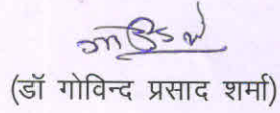 (डॉ गोविन्द प्रसाद शर्मा)